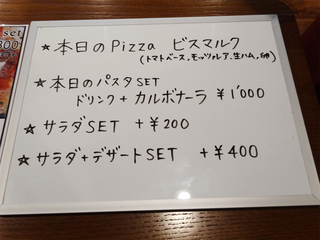 set
800
★本日のPizza ビスマルク
(トマトベース、モッツァレア、生ハム、卵)
★本日のパスタSET
ドリンク+カルボナーラ ¥1'000
☆サラダSET +¥200
☆サラダ+デザートSET +¥400